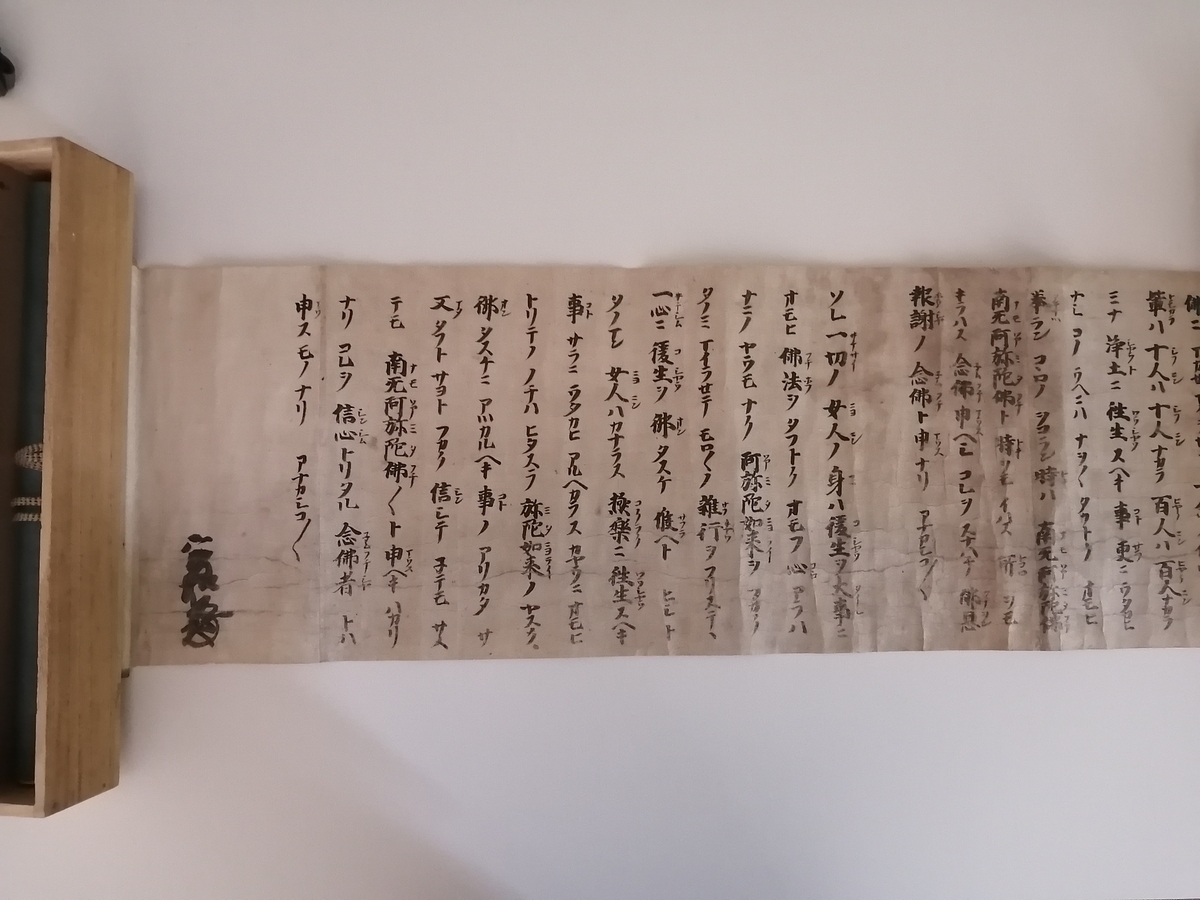 輩ハ 十人ハ 十人ナカラ 百人ハ 百人ナカラ
ミナ 淨土ニ 往生スヘキ 事 更ニ ウタカヒ
ナシ コノ ウヘニハ ナヲ〱 タフトク オモヒ
奉ラン コヽロノ ヲコラン 時ハ 南无阿弥陀佛
南无阿弥陀佛ト 時ヲモ イハス 所ヲモ
キラハス 念佛申ヘシ コレヲ スナハチ 佛恩
報謝ノ 念佛ト 申ナリ アナカシコ〱
ソレ 一切ノ 女人ノ 身ハ 後生ヲ 大事ニ
オモヒ 佛法ヲ タフトク オモフ 心 アラハ
ナニノ ヤウモ ナク 阿弥陀如来ヲ フカク
タノミ マイラセテ モロ〱ノ 雜行ヲ フリステヽ
一心ニ 後生ヲ 御タスケ 候ヘト ヒシト
タノマン 女人ハ カナラス 極樂ニ 往生スヘキ
事 サラニ ウタカヒ アルヘカラス カヤウニ オモヒ
トリテノ ノチハ ヒタスラ 弥陀如来ノ ヤスク
御タスケニ アツカルヘキ 事ノ アリカタ サ
又 タフトサヨト フカク 信シテ 子テモ サメ
テモ 南无阿弥陀佛〱ト 申ヘキ ハカリ
ナリ コレヲ 信心トリタル 念佛者 トハ
申ス モノナリ アナカシコ〱